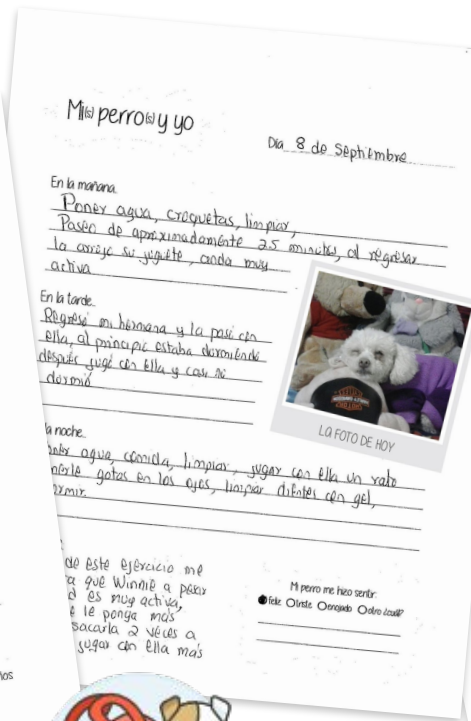 Mi(s) perro(s) y yo
Día 8 de Septiembre
En la mañana.
Poner agua, croquetas, limpiar,
Paseo de aproximadamente 25 minutos, al regresar
la arrojé su juguete, anda muy
activa
En la tarde.
Regresé mi hermana y la pasé con
ella, al principio estaba durmiendo
después jugé con ella y casi no
durmió
LA FOTO DE HOY
a noche.
oner agua, comida, limpiar, jugar con ella un rato
nerle gotas en los ojos, limpiar dientes con gel,
ormir.
de este ejercicio me
a que Winnie a pesar
d es muy activa,
e le ponga más
sacarla 2 veces a
jugar con ella más
Mi perro me hizo sentir:
Feliz Triste Enojado Otro ¿cuál?
ios